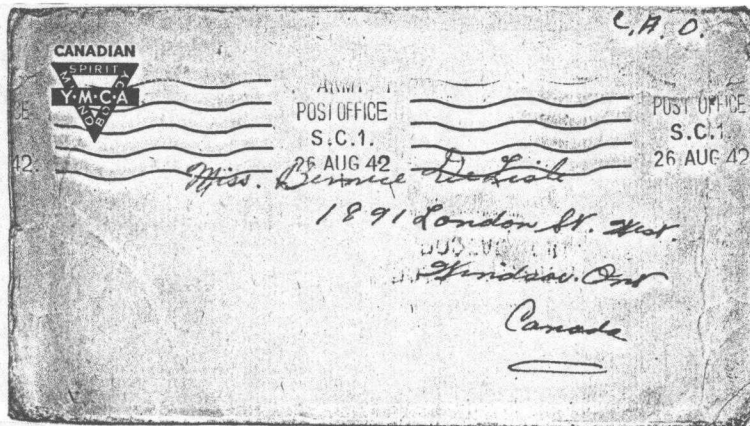 C.A.O.
CANADIAN
SPIRIT
MIND BODY
Y·M·C·A
ARMY
POST OFFICE
S.C.1.
26 AUG 42
POST OFFICE
S.C.1.
26 AUG 42
42.
Miss. Bernice DeLisle
1891 London St. West.
Windsor. Ont
Canada